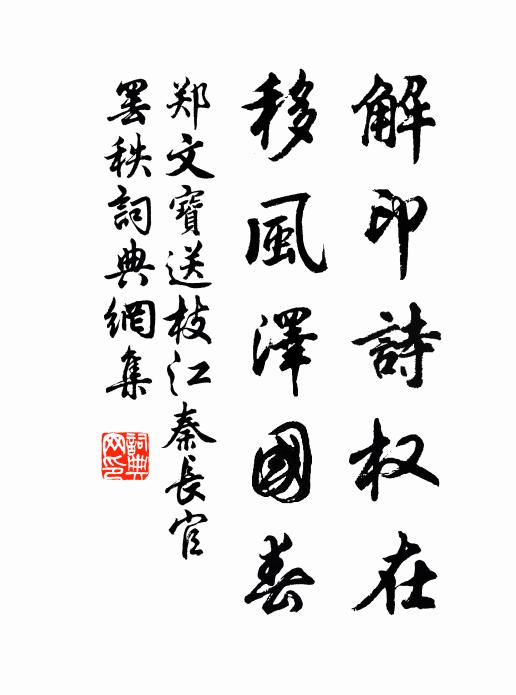 解印詩权在
移風澤國春
郑文寶送枝江秦長官
罢秩詞典網集
詞典网印